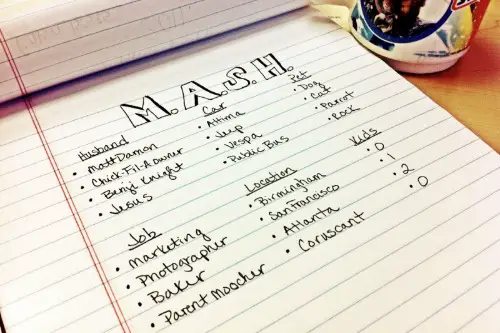 M.A.S.H.
Husband
• Matt Damon
• Chick-Fil-A owner
• Beryl Knight
• Jesus
Car
• Altima
• Jeep
• Vespa
• Public Bus
Pet
• Dog
• Cat
• Parrot
• Rock
Job
• Marketing
• Photographer
• Baker
• Parent Moocher
Location
• Birmingham
• San Francisco
• Atlanta
• Coruscant
Kids
• 0
• 1
• 2
• 0